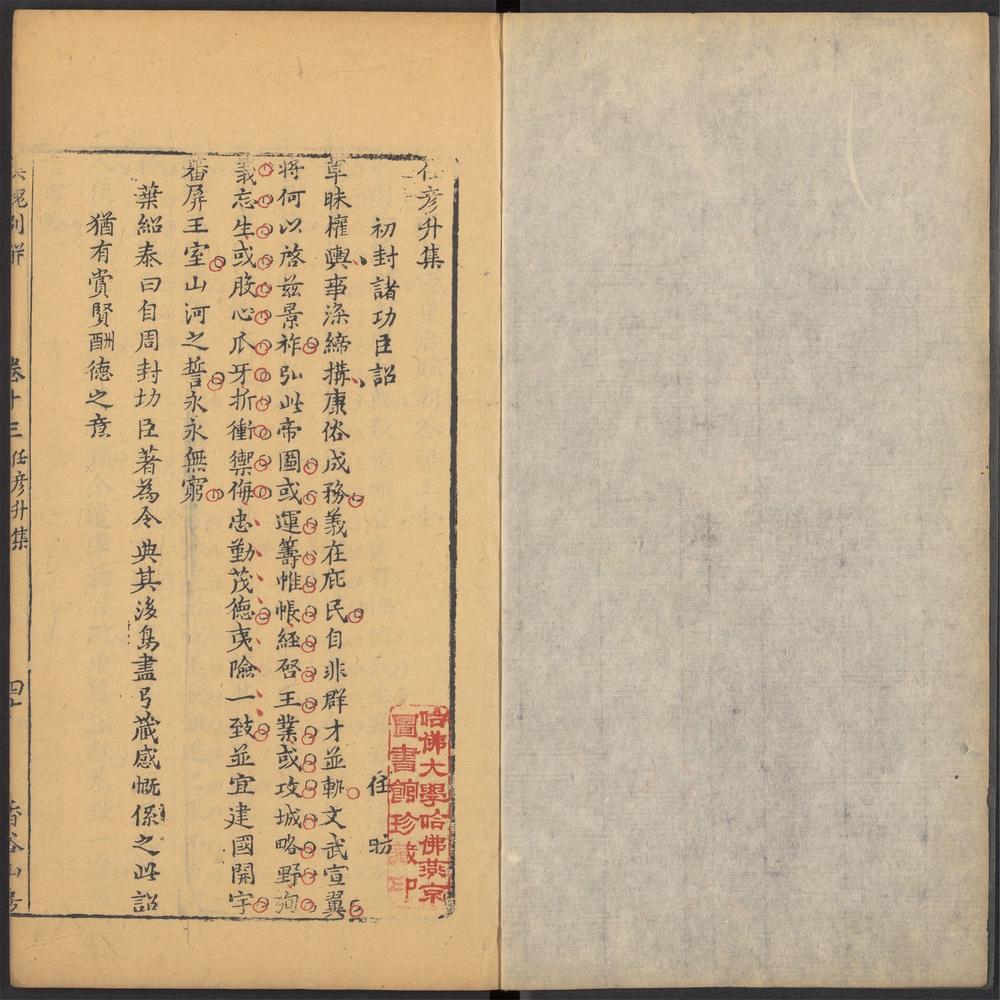 任彦升集
初封諸功臣詔
任昉
草昧權輿事深締構康俗成務義在庇民自非群才並軌文武宣翼
將何以啓茲景祚弘此帝圖或運籌帷帳經啓王業或攻城略野殉
義忘生或股心爪牙折衝禦侮忠勤茂德夷險一致並宜建國開宇
蕃屏王室山河之誓永永無窮
葉紹泰曰自周封功臣著為令典其後鳥盡弓藏感慨係之此詔
猶有賞賢酬德之意
卷十三任彦升集
哈佛大學哈佛燕京
圖書館珍藏印